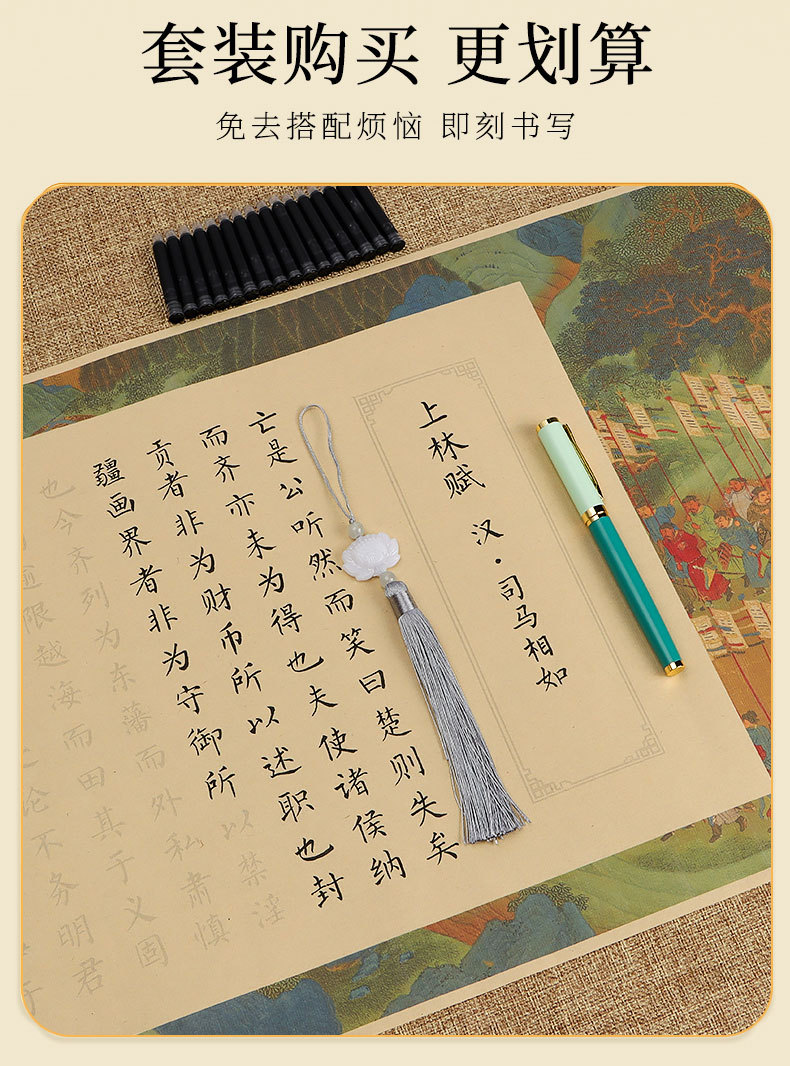 套装购买 更划算
免去搭配烦恼 即刻书写
上林赋 汉·司马相如
亡是公听然而笑曰楚则失矣
而齐亦未为得也夫使诸侯纳
贡者非为财币所以述职也封
疆画界者非为守御所以禁淫
也今齐列为东藩而外私肃慎
限越海而田其于义固
论不务明君